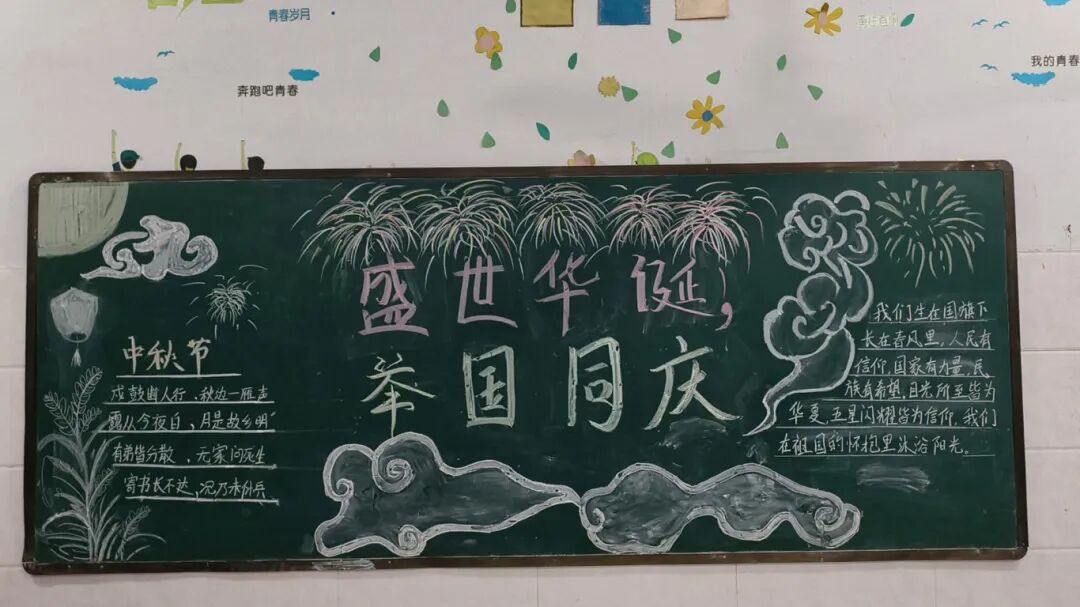 青春岁月
奔跑吧青春
我的青春
盛世华诞，
举国同庆
中秋节
戍鼓断人行，秋边一雁声
露从今夜白，月是故乡明
有弟皆分散，无家问死生
寄书长不达，况乃未休兵
我们生在国旗下
长在春风里，人民有
信仰，国家有力量，民
族有希望，目光所至皆为
华夏，五星闪耀皆为信仰，我们
在祖国的怀抱里沐浴阳光。